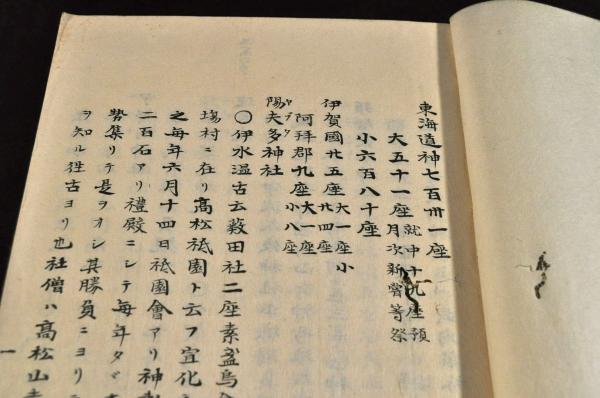 東海道神七百卅一座
大五十一座就中十九座預
月次新嘗等祭
小六百八十座
伊賀國廿五座大一座小
廿四座
阿拜郡九座大一座
小八座
陽夫多神社
ヤブタ
〇伊水溫古云薮田社二座素盞烏
塲村ニ在リ高松祗園ト云フ宣化
之每年六月十四日祗園會アリ神
二百石アリ禮殿ニシテ每年タビ
勢集リテ是ヲオシ其勝負ニヨリ
ヲ知ル往古ヨリ也社僧ハ高松山